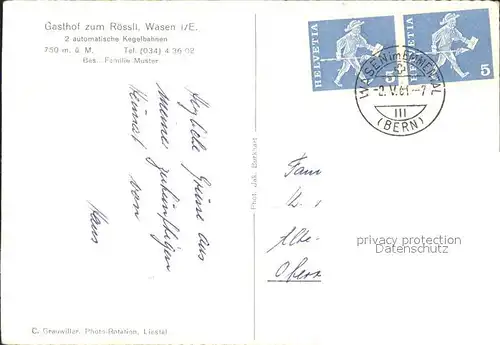 Gasthof zum Rössli, Wasen i/E.
2 automatische Kegelbahnen
750 m. ü. M. Tel. (034) 4 36 02
Bes. Familie Muster
Herzliche Grüsse aus
meiner zukünftigen
Heimat von
Hans
Phot. Jak. Burkhart
C. Grauwiller, Photo-Rotation, Liestal
HELVETIA 5
HELVETIA 5
WASEN im EMMENTAL
-2.V.61.-7
III
(BERN)
Fam
Alte-
privacy protection
Datenschutz